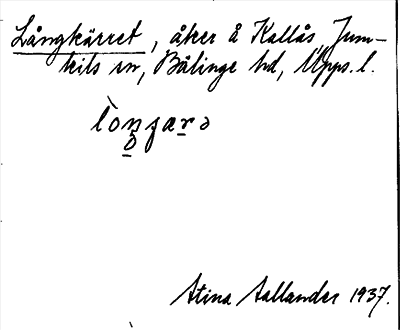 Långkärret, åker å Kallås, Jum-
kils sn, Bälinge hd, Upps. l.
Stina Sallander 1937.